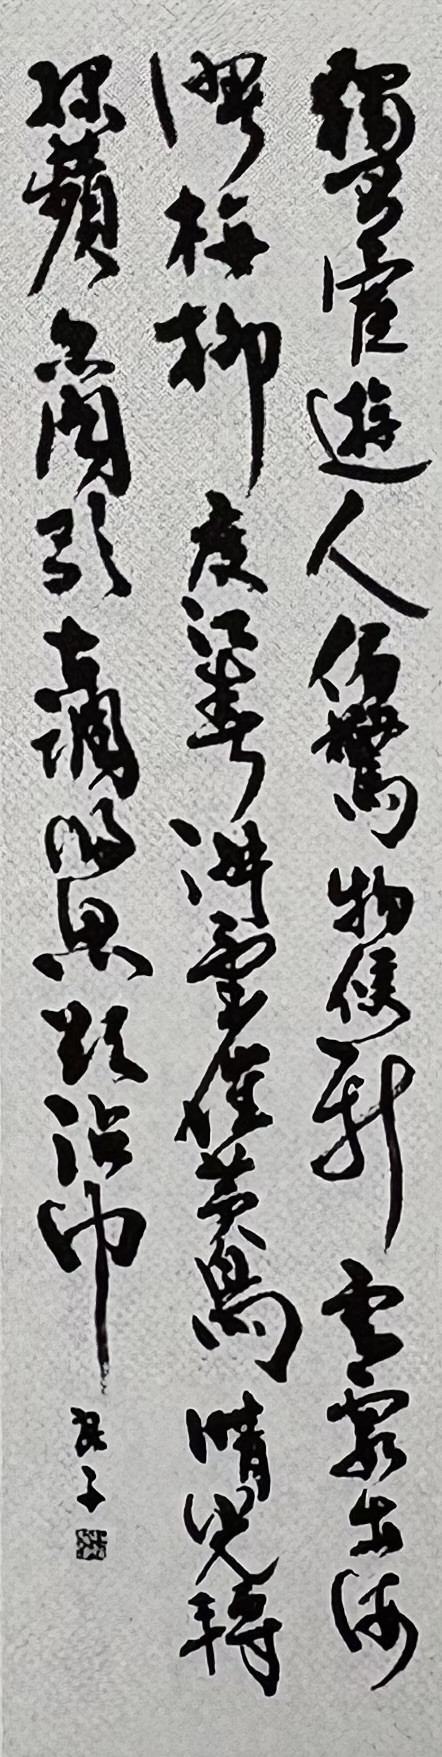 獨有宦遊人偏驚物候新雲霞出海
曙梅柳度江春淑氣催黃鳥晴光轉
綠蘋忽聞歌古調歸思欲沾巾
子